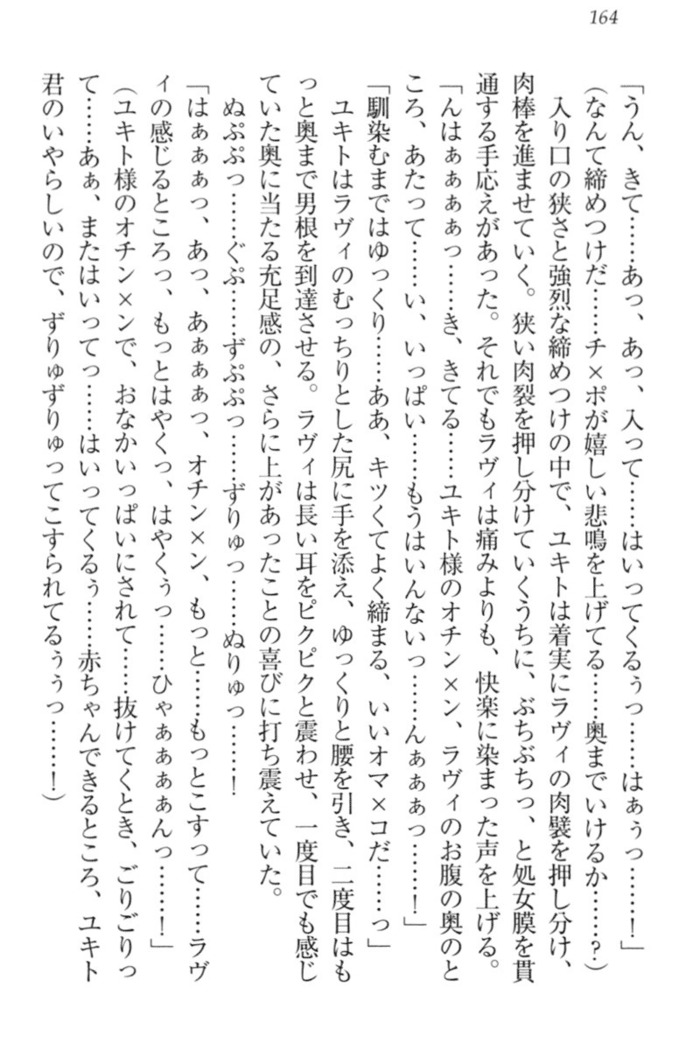 164
「うん、きて……あっ、あっ、入って……はいってくるぅっ……はぁぅっ……！」
（なんて締めつけだ……チ×ポが嬉しい悲鳴を上げてる……奥までいけるか……？）
入り口の狭さと強烈な締めつけの中で、ユキトは着実にラヴィの肉襞を押し分け、
肉棒を進ませていく。狭い肉裂を押し分けていくうちに、ぶちぶちっ、と処女膜を貫
通する手応えがあった。それでもラヴィは痛みよりも、快楽に染まった声を上げる。
「んはぁぁぁぁっ……き、きてる……ユキト様のオチン×ン、ラヴィのお腹の奥のと
ころ、あたって……い、いっぱい……もうはいんないっ……んぁぁぁっ……！」
「馴染むまではゆっくり……ああ、キツくてよく締まる、いいオマ×コだ……っ」
ユキトはラヴィのむっちりとした尻に手を添え、ゆっくりと腰を引き、二度目はも
っと奥まで男根を到達させる。ラヴィは長い耳をピクピクと震わせ、一度目でも感じ
ていた奥に当たる充足感の、さらに上があったことの喜びに打ち震えていた。
ぬぷぷっ……ぐぷ……ずぷぷっ……ずりゅっ……ぬりゅっ……！
「はぁぁぁっ、あっ、あぁぁぁっ、オチン×ン、もっと……もっとこすって……ラヴ
ィの感じるところっ、もっとはやくっ、はやくぅっ……ひゃぁぁぁぁんっ……！」
（ユキト様のオチン×ンで、おなかいっぱいにされて……抜けてくとき、ごりごりっ
て……あぁ、またはいってっ……はいってくるぅ……赤ちゃんできるところ、ユキト
君のいやらしいので、ずりゅずりゅってこすられてるぅぅっ……！）